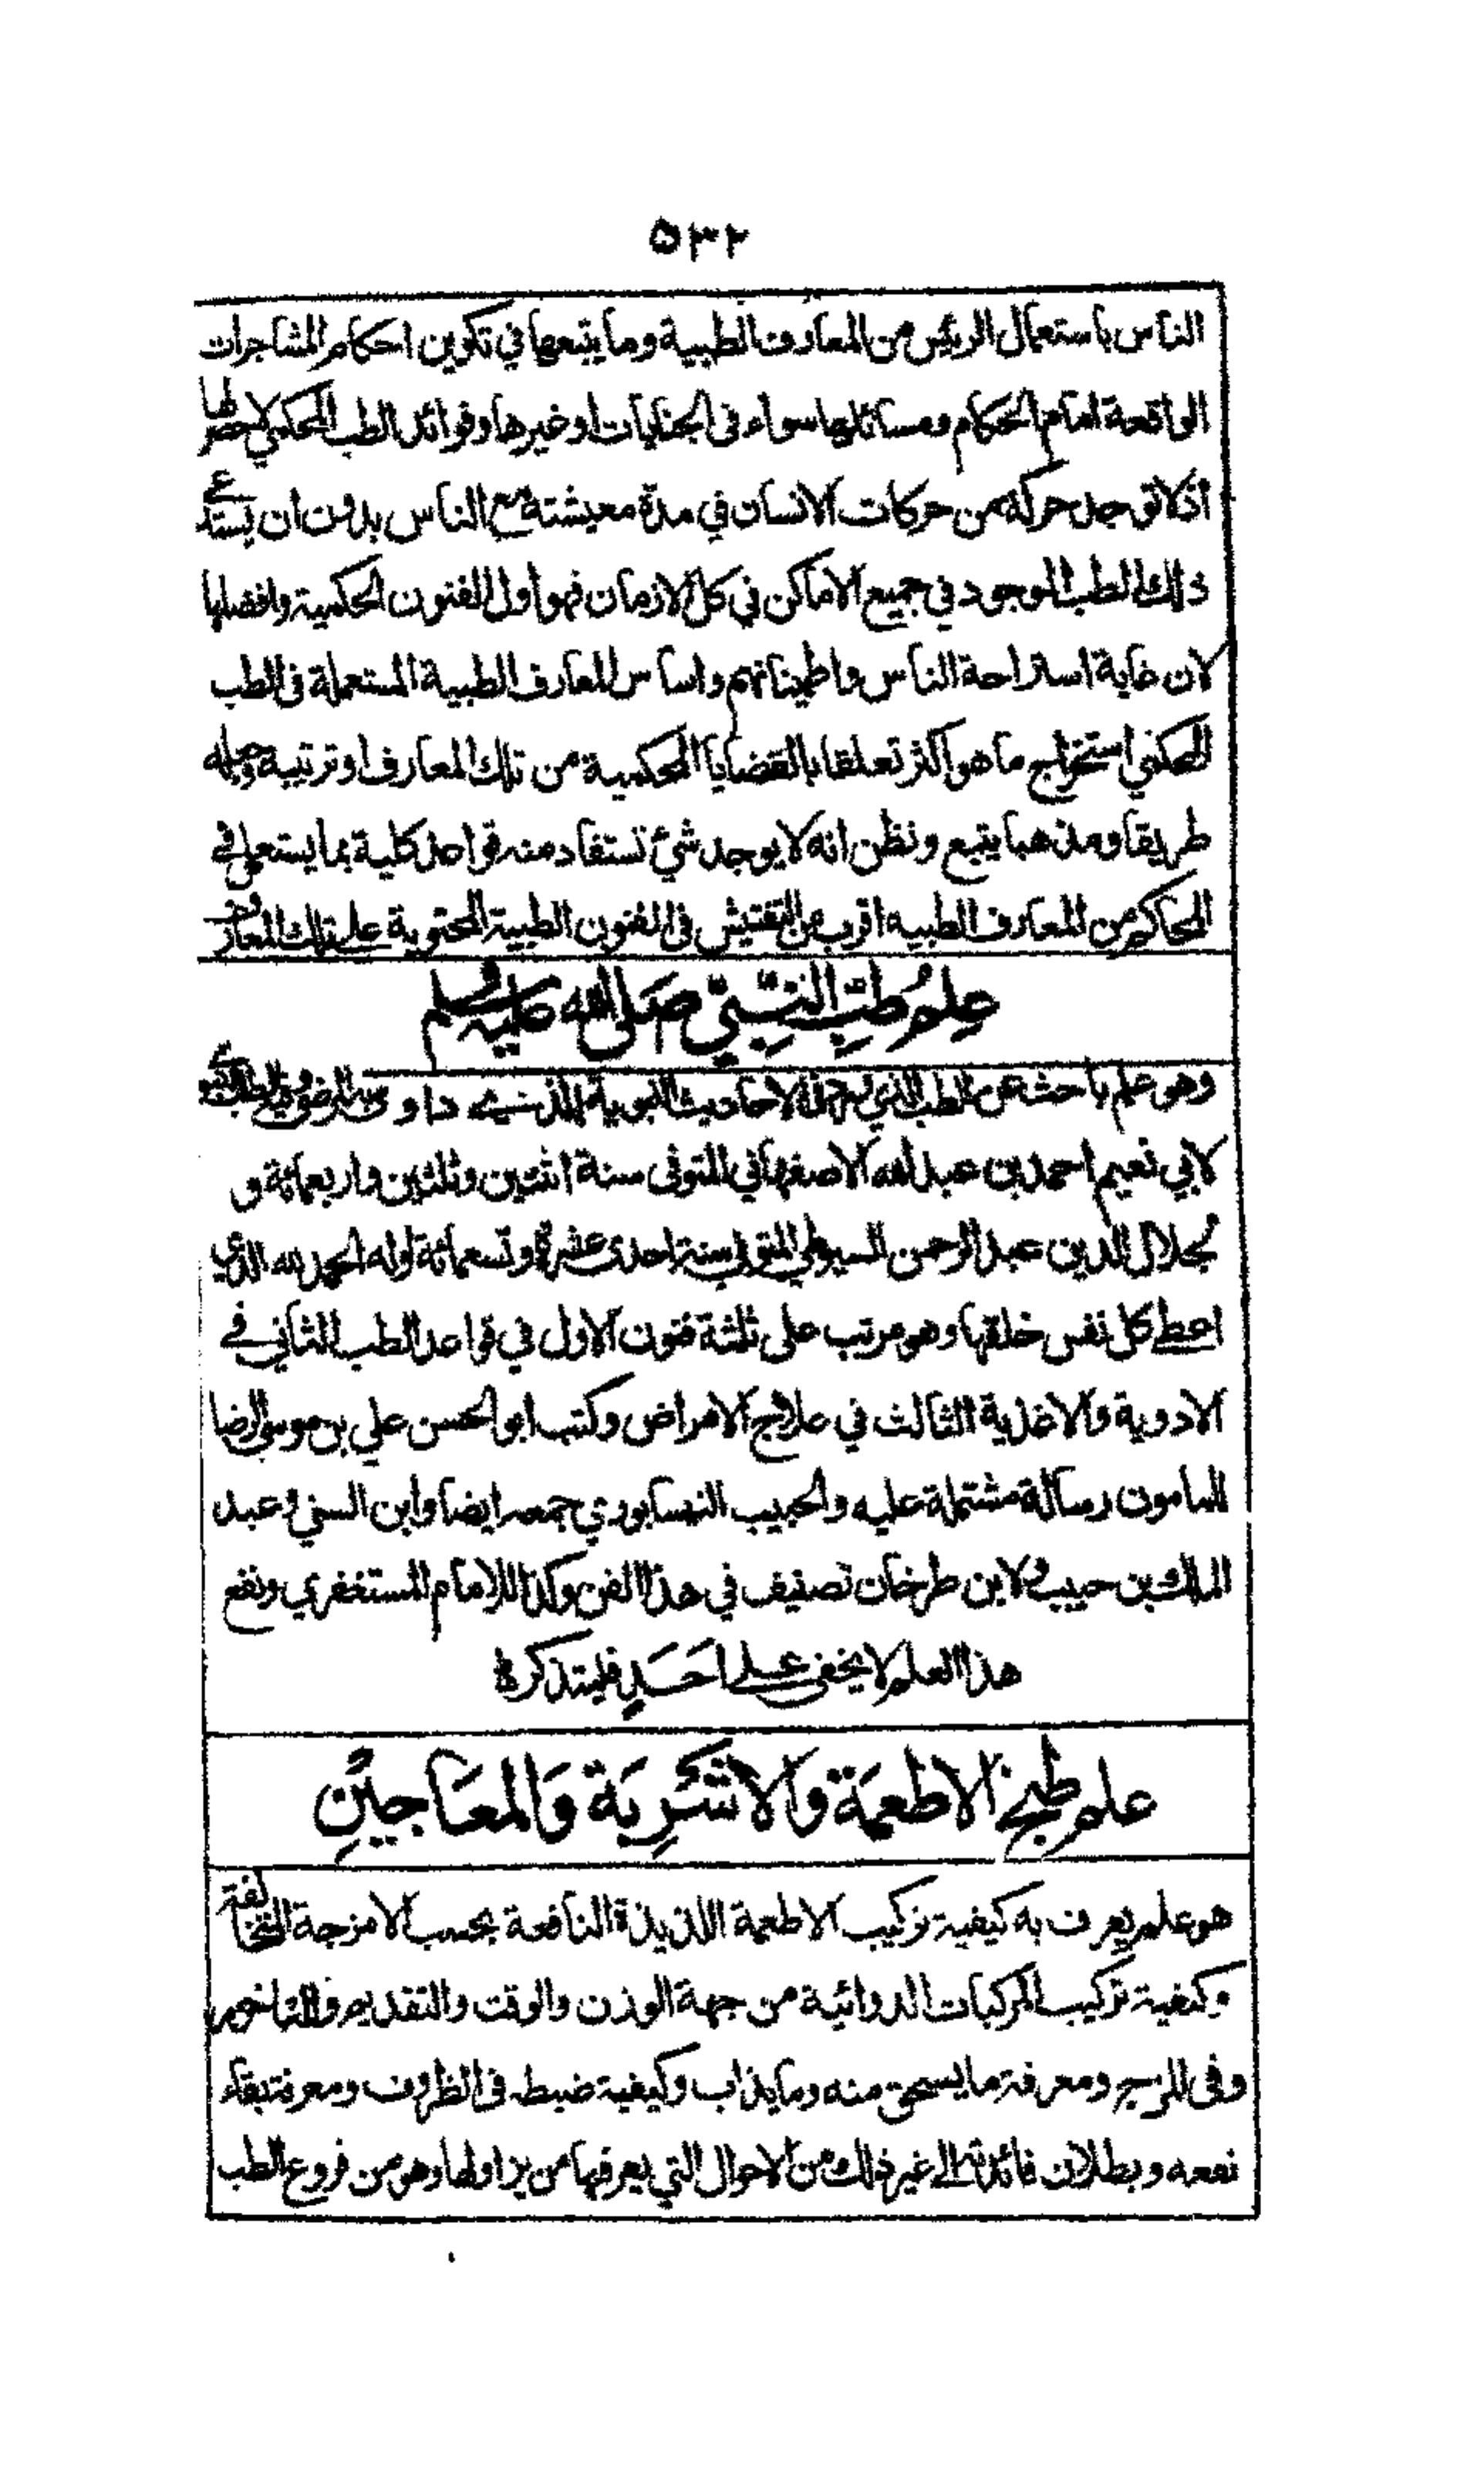 ٥٣٢
الناس باستعمال الرئيس من المعارف الطبية وما يتبعها في تكوين احكام المشاجرات
الواقعة امام الحكام ومسائلها سواء في الجنايات او غيرها وفوائد الطب المحكمي لا حصر لها
اذ لا توجد حركة من حركات الانسان في مدة معيشته مع الناس بدون ان يستدعي
ذلك الطب الموجود في جميع الاماكن في كل الازمان فهو اول الفنون الحكمية وافضلها
لان غاية استراحة الناس واطمينانهم واساس المعارف الطبية المستعملة في الطب
المحكمي استخراج ما هو اكثر تعلقا بالقضايا المحكمية من تلك المعارف او ترتيبه وجعله
طريقا ومذهبا يتبع ونظن انه لا يوجد شئ تستفاد منه قواعد كلية بما يستعمل في
المحاكم من المعارف الطبيه اقرب من التفتيش في الفنون الطبية المحتوية على تلك المعارف
علم طب النبي صلى الله عليه وسلم
وهو علم باحث عن الطب الذي ورد في الاحاديث النبوية الذي داوى به المرضى
لابي نعيم احمد بن عبد الله الاصفهاني المتوفى سنة اثنتين وثلثين واربعمائة و
لجلال الدين عبد الرحمن السيوطي المتوفى سنة احدى عشرة وتسعمائة اوله الحمد لله الذي
اعطى كل نفس خلقها وهو مرتب على ثلثة فنون الاول في قواعد الطب الثاني في
الادوية والاغذية الثالث في علاج الامراض وكتب ابو الحسن علي بن موسى الرضا
للمامون رسالة مشتملة عليه والحبيب النيسابوري جمعه ايضا وابن السني وعبد
الملك بن حبيب ولابن طرخان تصنيف في هذا الفن وكذا للامام المستغفري ونفع
هذا العلم لا يخفى على احد فليتذكره
علم طبخ الاطعمة والاشربة والمعاجين
هو علم يعرف به كيفية تركيب الاطعمة اللذيذة النافعة بحسب الامزجة المتخالفة
وكيفية تركيب المركبات الدوائية من جهة الوزن والوقت والتقديم والتاخير
وفي المزج ومعرفة ما يسحق منه وما يذاب وكيفية ضبطه في الظروف ومعرفة بقاء
نفعه وبطلان فائدته الى غير ذلك من الاحوال التي يعرفها من يزاولها وهو من فروع الطب